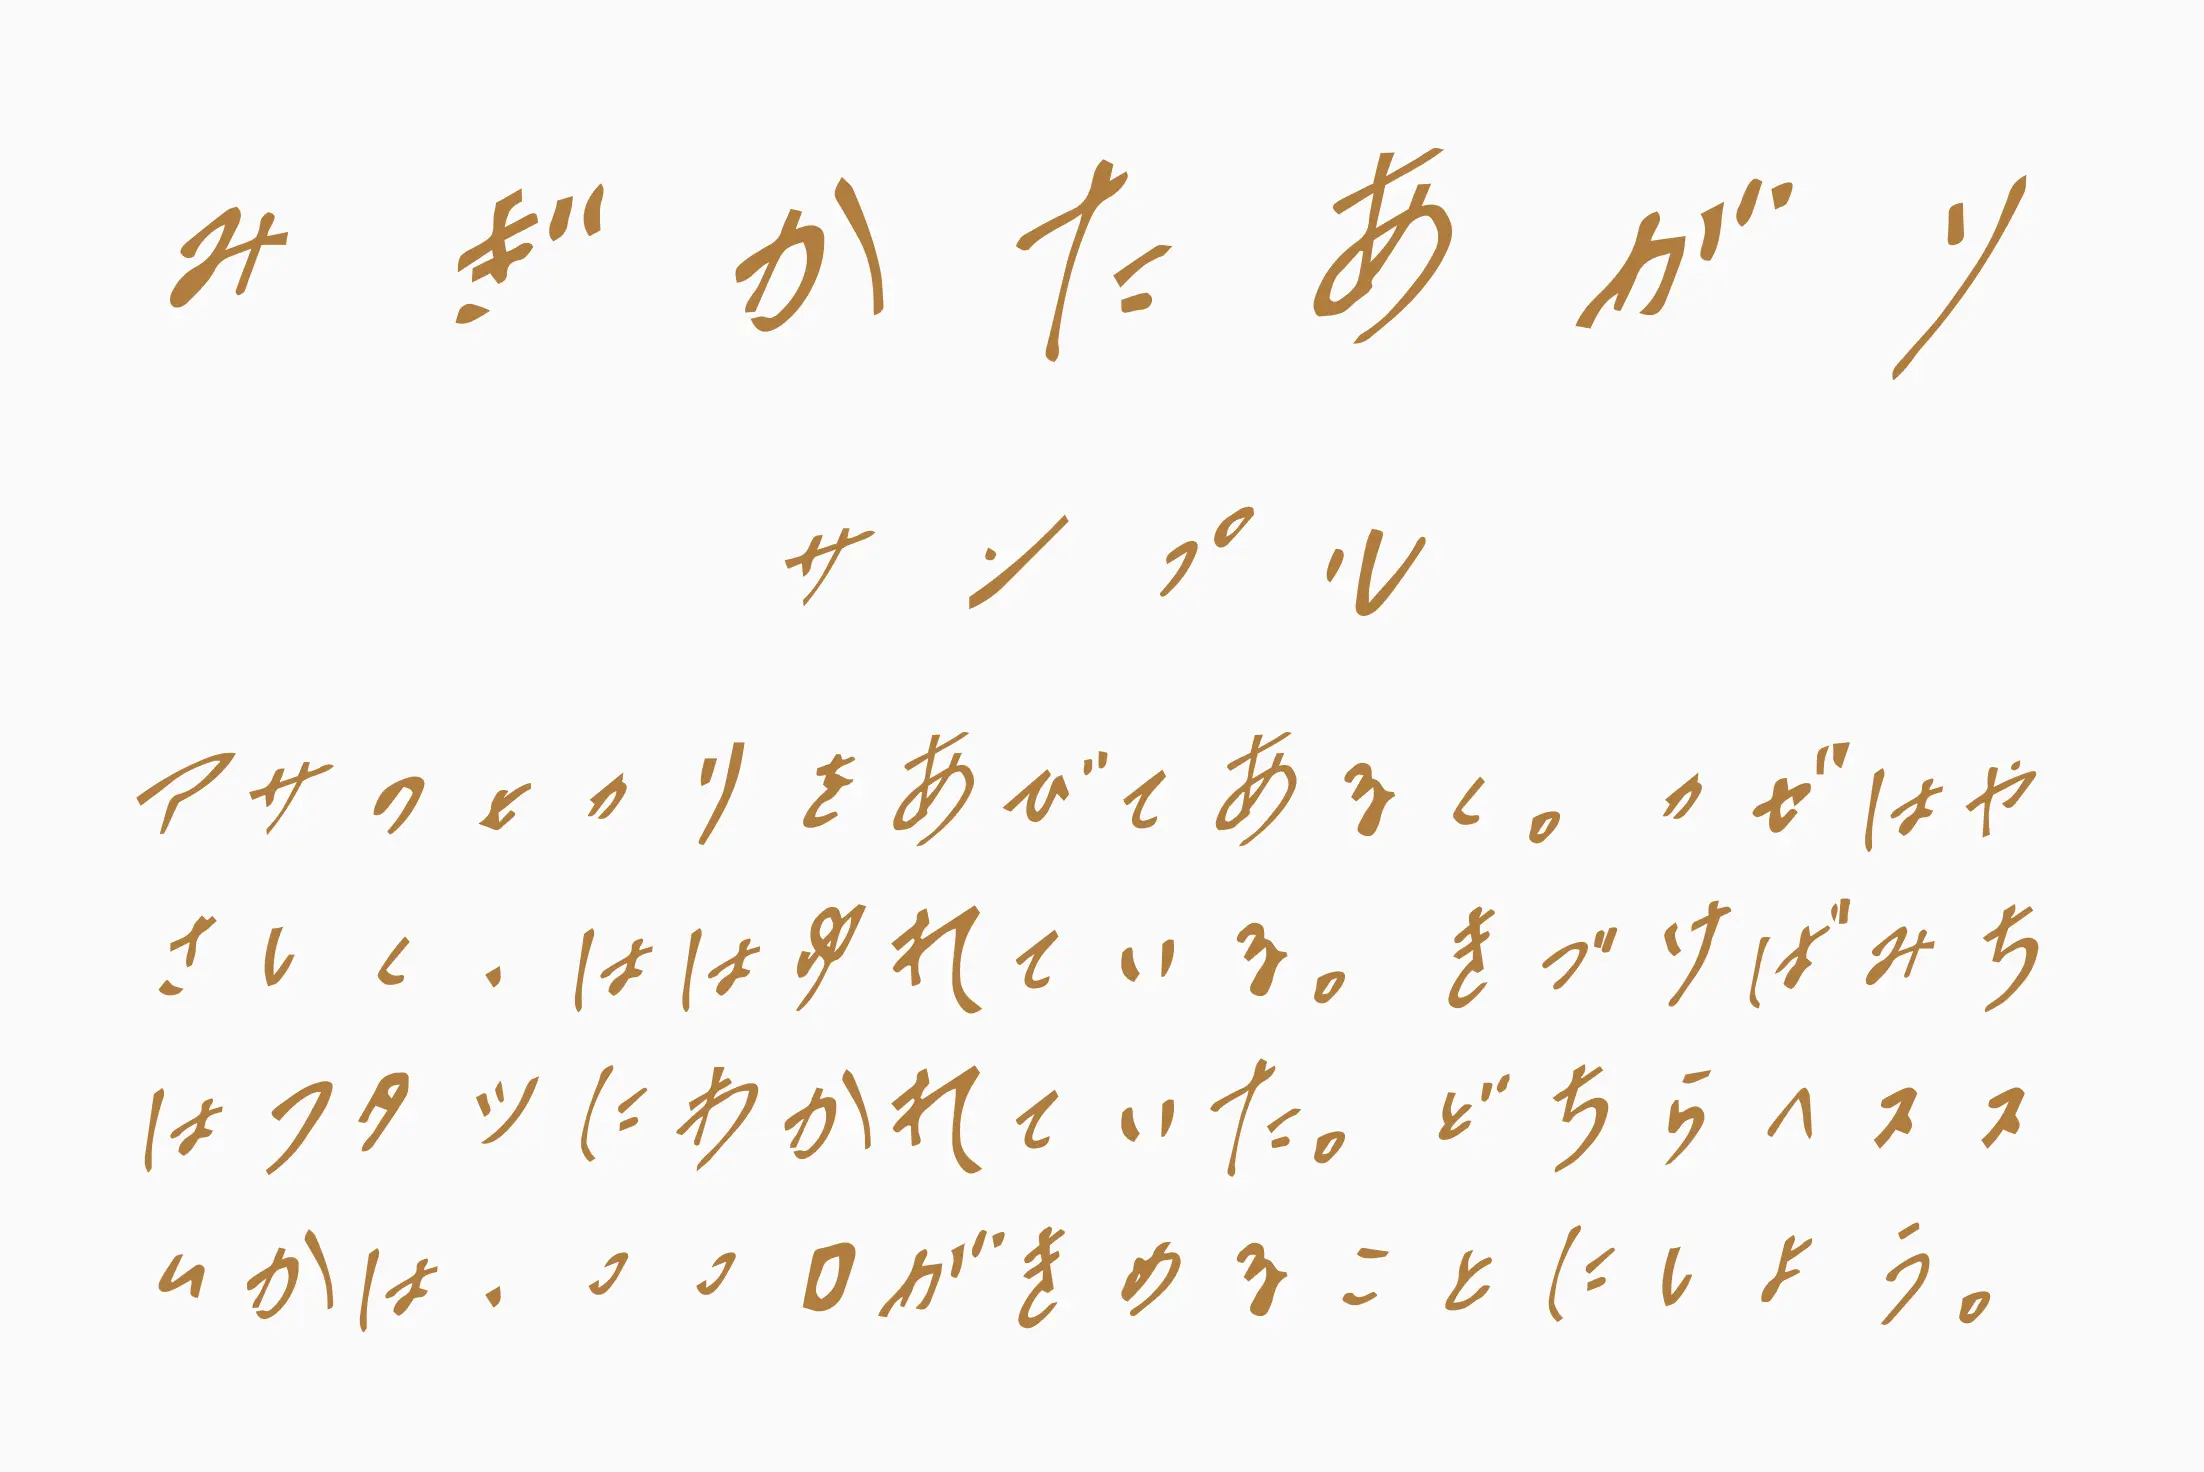 みぎかたあがり
サンプル
アサのヒカリをあびてあるく。カぜはや
さしく、ははゆれている。きづけばみち
はフタツにわかれていた。どちらへスス
むかは、ココロがきめることにしよう。